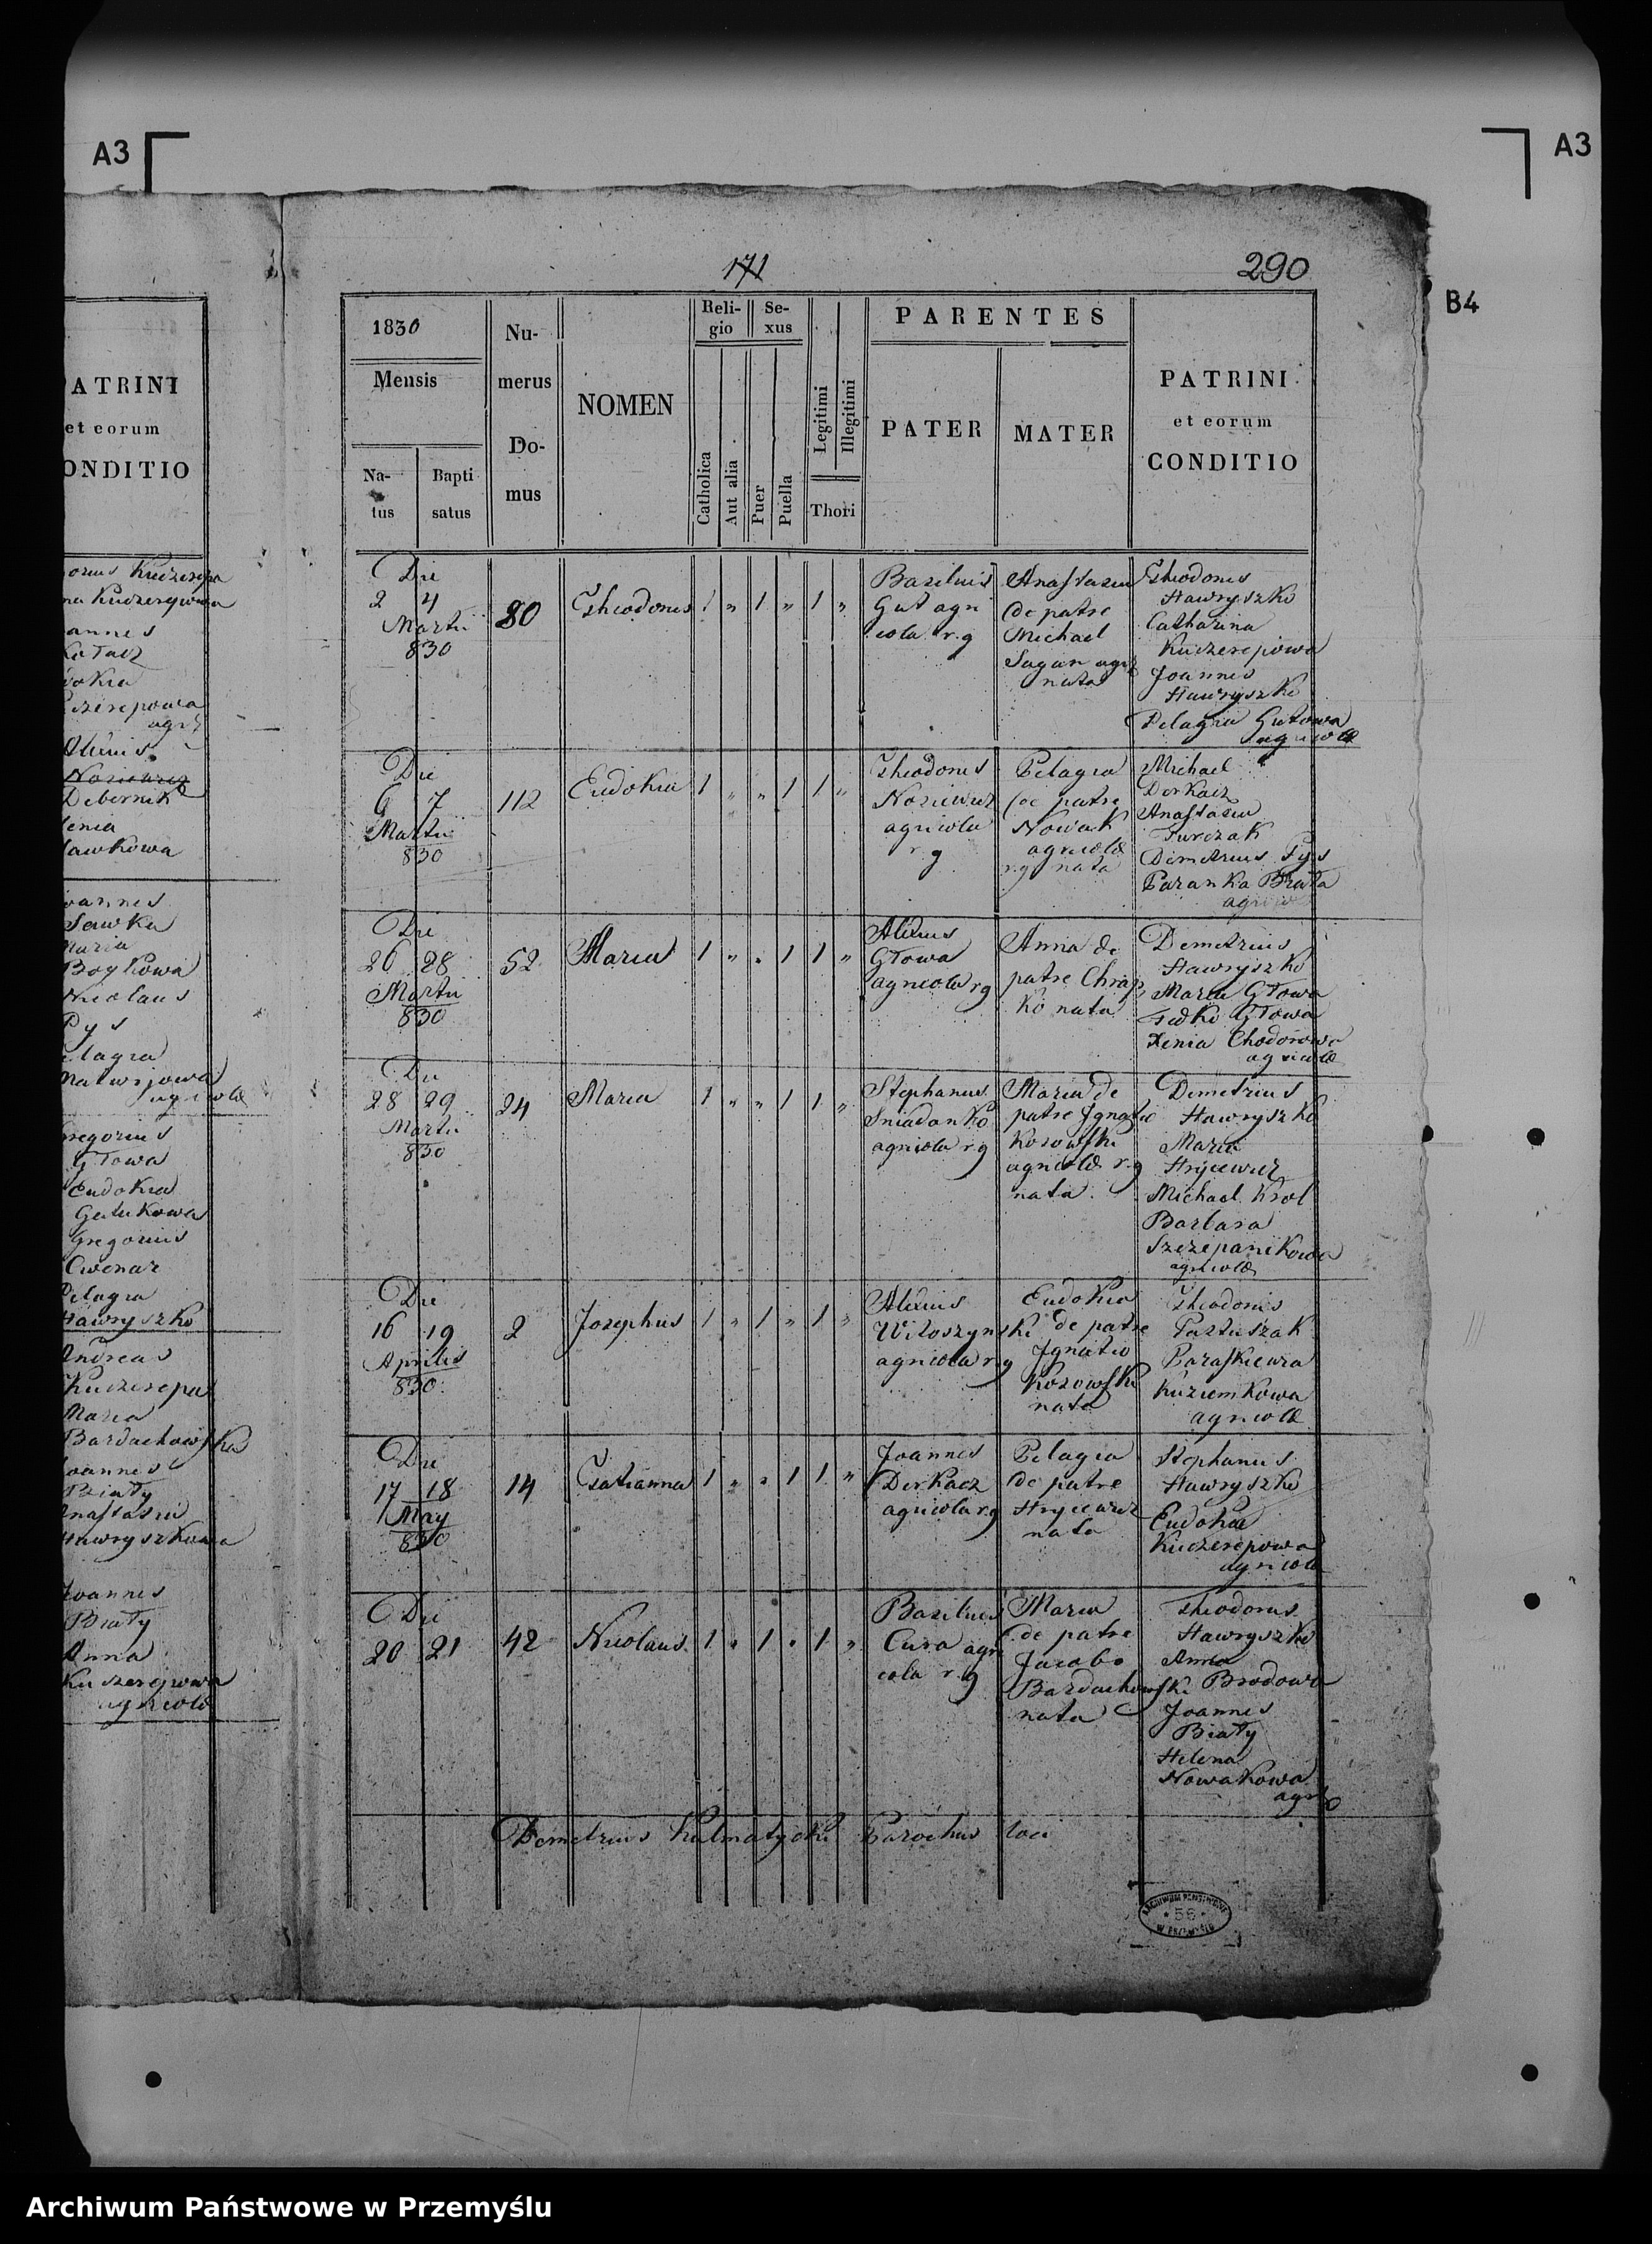 A3
A3
B4
171
290
ATRINI
et eorum
ONDITIO
orius Kuczerepa
na Kuczerepowa
annes
okia
czerepowa
agr
Alexius
Nosiewicz
Debernik
enia
awkowa
oannes
Sawka
Maria
Boykowa
Nicolaus
Pys
elagia
Matwijowa
agricolæ
regorius
Głowa
Eudokia
Gutukowa
Gregorius
Cwenar
Pelagia
Hawryszko
Andreas
Kuczerepa
Maria
Bardachowska
Joannes
Biały
Anastasia
Hawryszkowa
Joannes
Biały
Anna
Kuczerepowa
agricolæ
1830
Mensis
Na-
tus
Bapti
satus
Nu-
merus
Do-
mus
NOMEN
Reli-
gio
Catholica
Aut alia
Se-
xus
Puer
Puella
Legitimi
Illegitimi
Thori
PARENTES
PATER
MATER
PATRINI
et eorum
CONDITIO
Die
2 4
Martii
830
80
Theodorus
1 " 1 " 1 "
Basilius
Gut agri
cola r.g
Anastasia
de patre
Michael
Sagan agr
nata
Theodorus
Hawryszko
Catharina
Kuczerepowa
Joannes
Hawryszko
Pelagia Gutowa
agricolæ
Die
6 7
Martii
830
112
Eudokia
1 " " 1 1 "
Theodorus
Nosiewicz
agricola
r g
Pelagia
de patre
Nowak
agricolæ
r.g nata
Michael
Derkacz
Anastasia
Turczak
Demetrius Pys
Paranka Brała
agricolæ
Die
26 28
Martii
830
52
Maria
1 " " 1 1 "
Alexius
Głowa
agricola rg
Anna de
patre Chrap
ko nata
Demetrius
Hawryszko
Maria Głowa
Fedko Głowa
Xenia Chodorowa
agricolæ
Die
28 29
Martii
830
24
Maria
1 " " 1 1 "
Stephanus
Sniadanko
agricola r g
Maria de
patre Jgnatio
Kosowski
agricolæ r.g
nata
Demetrius
Hawryszko
Maria
Hryciewicz
Michael Krol
Barbara
Szczepanikowa
agricolæ
Die
16 19
Aprilis
830
2
Josephus
1 " 1 " 1 "
Alexius
Witoszynski
agricola r.g
Eudokia
de patre
Jgnatio
Kosowski
nata
Theodorus
Partuszak
Paraskiewia
Kuziemkowa
agricolæ
Die
17 18
May
830
14
Tatianna
1 " " 1 1 "
Joannes
Derkacz
agricola r.g
Pelagia
de patre
Hryciewicz
nata
Stephanus
Hawryszko
Eudokia
Kuczerepowa
agricolæ
Die
20 21
42
Nicolaus
1 " 1 " 1 "
Basilius
Cura agri
cola r.g
Maria
de patre
Jacobo
Bardachowski
nata
Theodorus
Hawryszko
Anna
Brodowa
Joannes
Biały
Helena
Nowakowa
agr
Demetrius Kulmatycki Parochus loci
ARCHIWUM PAŃSTWOWE
* 56 *
W PRZEMYŚLU
Archiwum Państwowe w Przemyślu